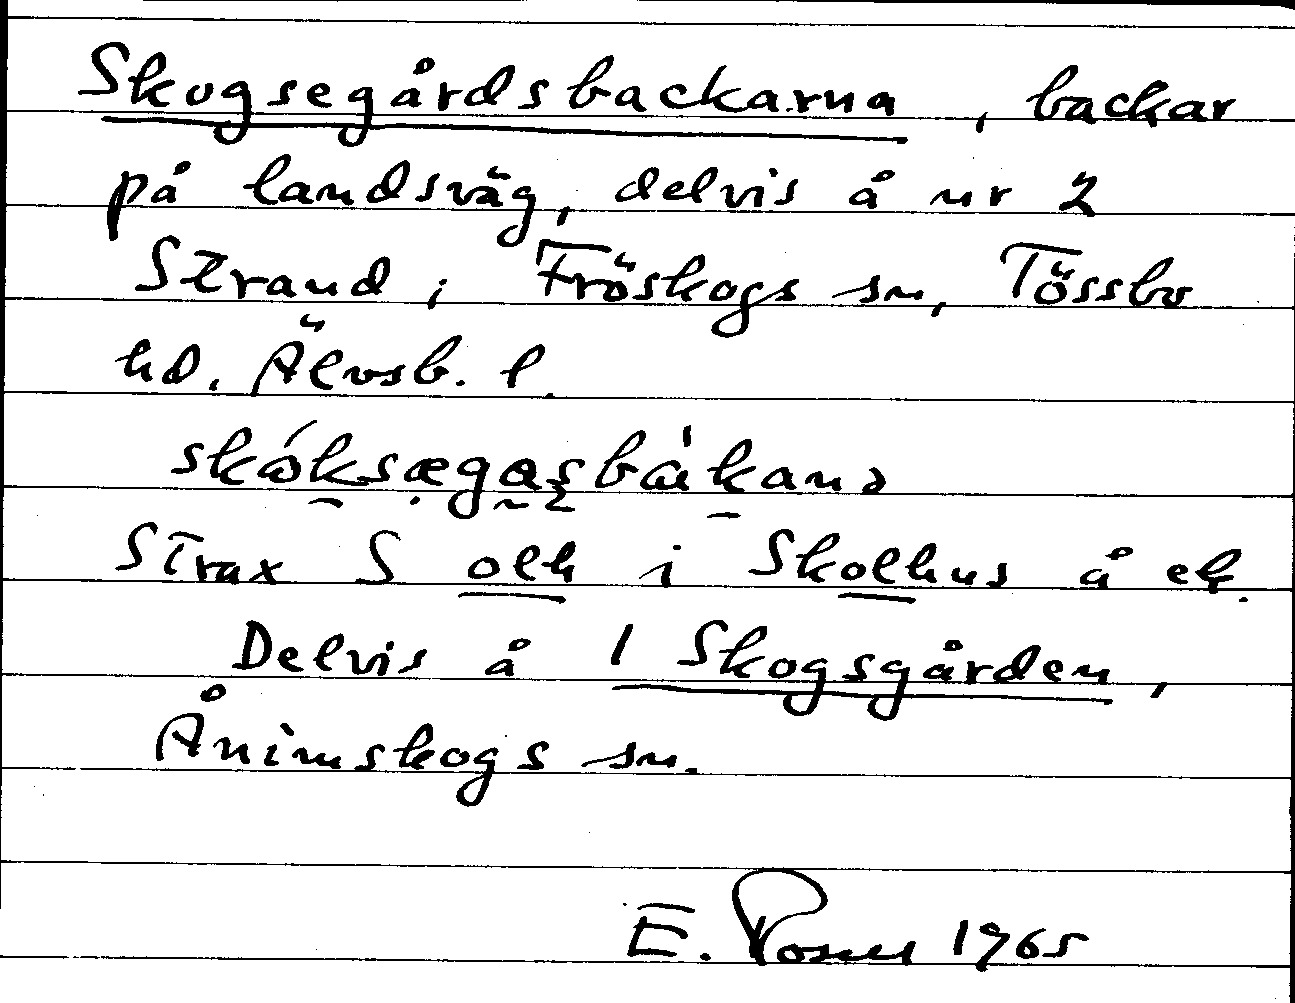 Skogsegårdsbackarna, backar
på landsväg, delvis å nr 2
Strand i Fröskogs sn, Tössbo
hd. Älvsb. l.
Strax S olh i Skolhus å ek.
Delvis å 1 Skogsgården,
Ånimskogs sn.
E. 1965